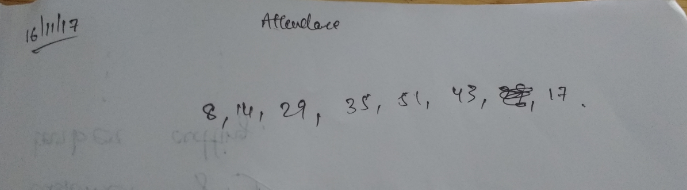 16/11/17
Attendace
8, 14, 29, 35, 51, 43, 17.